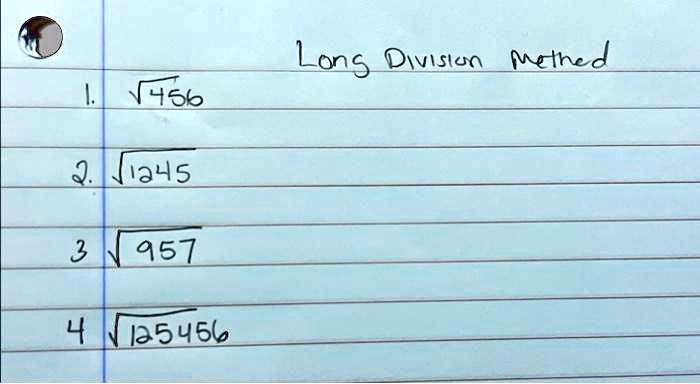 Long Division Method
1. √456
2. √1245
3 √957
4 √125456